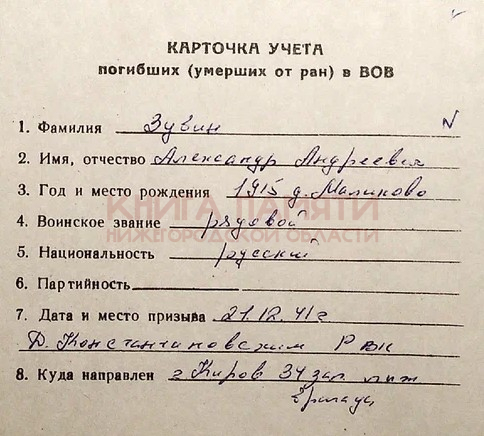 КАРТОЧКА УЧЕТА
погибших (умерших от ран) в ВОВ
1. Фамилия Зувин
2. Имя, отчество Александр Андреевич
3. Год и место рождения 1915 д. Малиново
КНИГА ПАМЯТИ
4. Воинское звание рядовой
НИЖЕГОРОДСКОЙ ОБЛАСТИ
5. Национальность русский
6. Партийность
7. Дата и место призыва 21.12.41г
Д. Константиновским РВК
8. Куда направлен г Киров 34 зап.
бригада